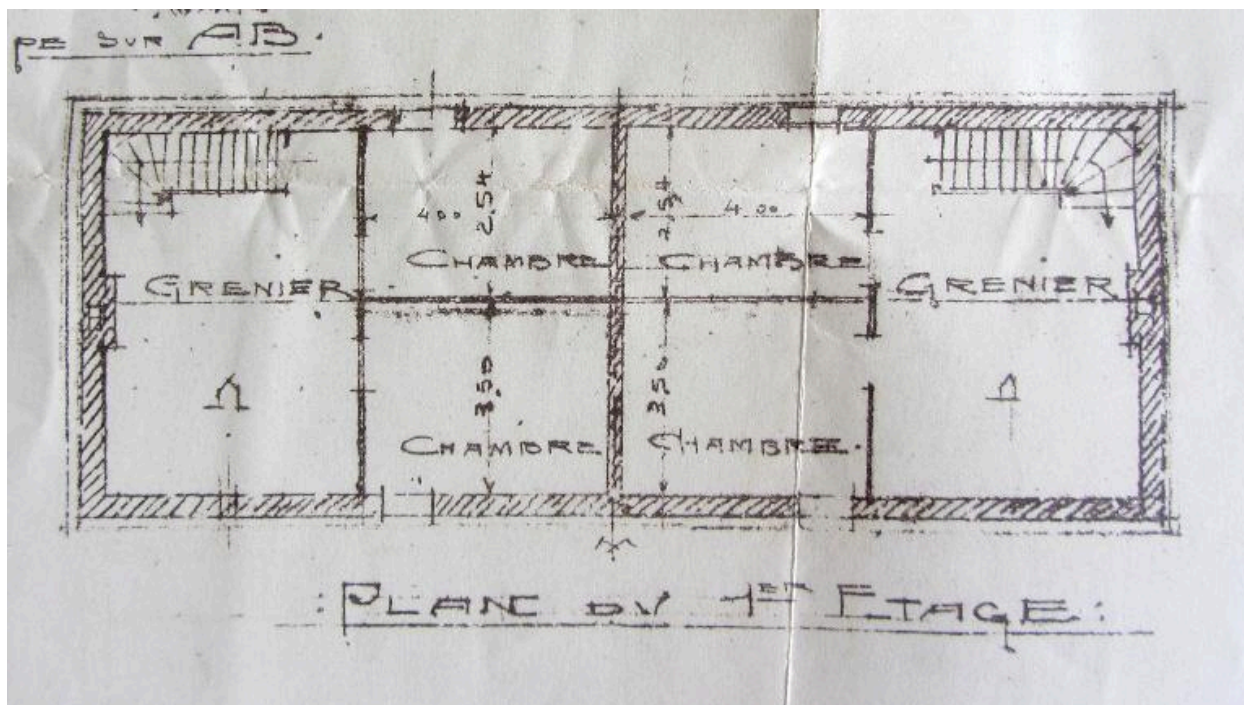 PE SUR AB.
4.00
2.54
2.54
4.00
CHAMBRE
CHAMBRE
GRENIER
GRENIER
3.50
3.50
CHAMBRE
CHAMBRE.
: PLAN DU 1ER ETAGE :